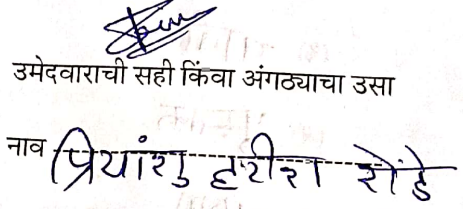 उमेदवाराची सही किंवा अंगठ्याचा उसा
नाव प्रियांशु हरीश शेंडे